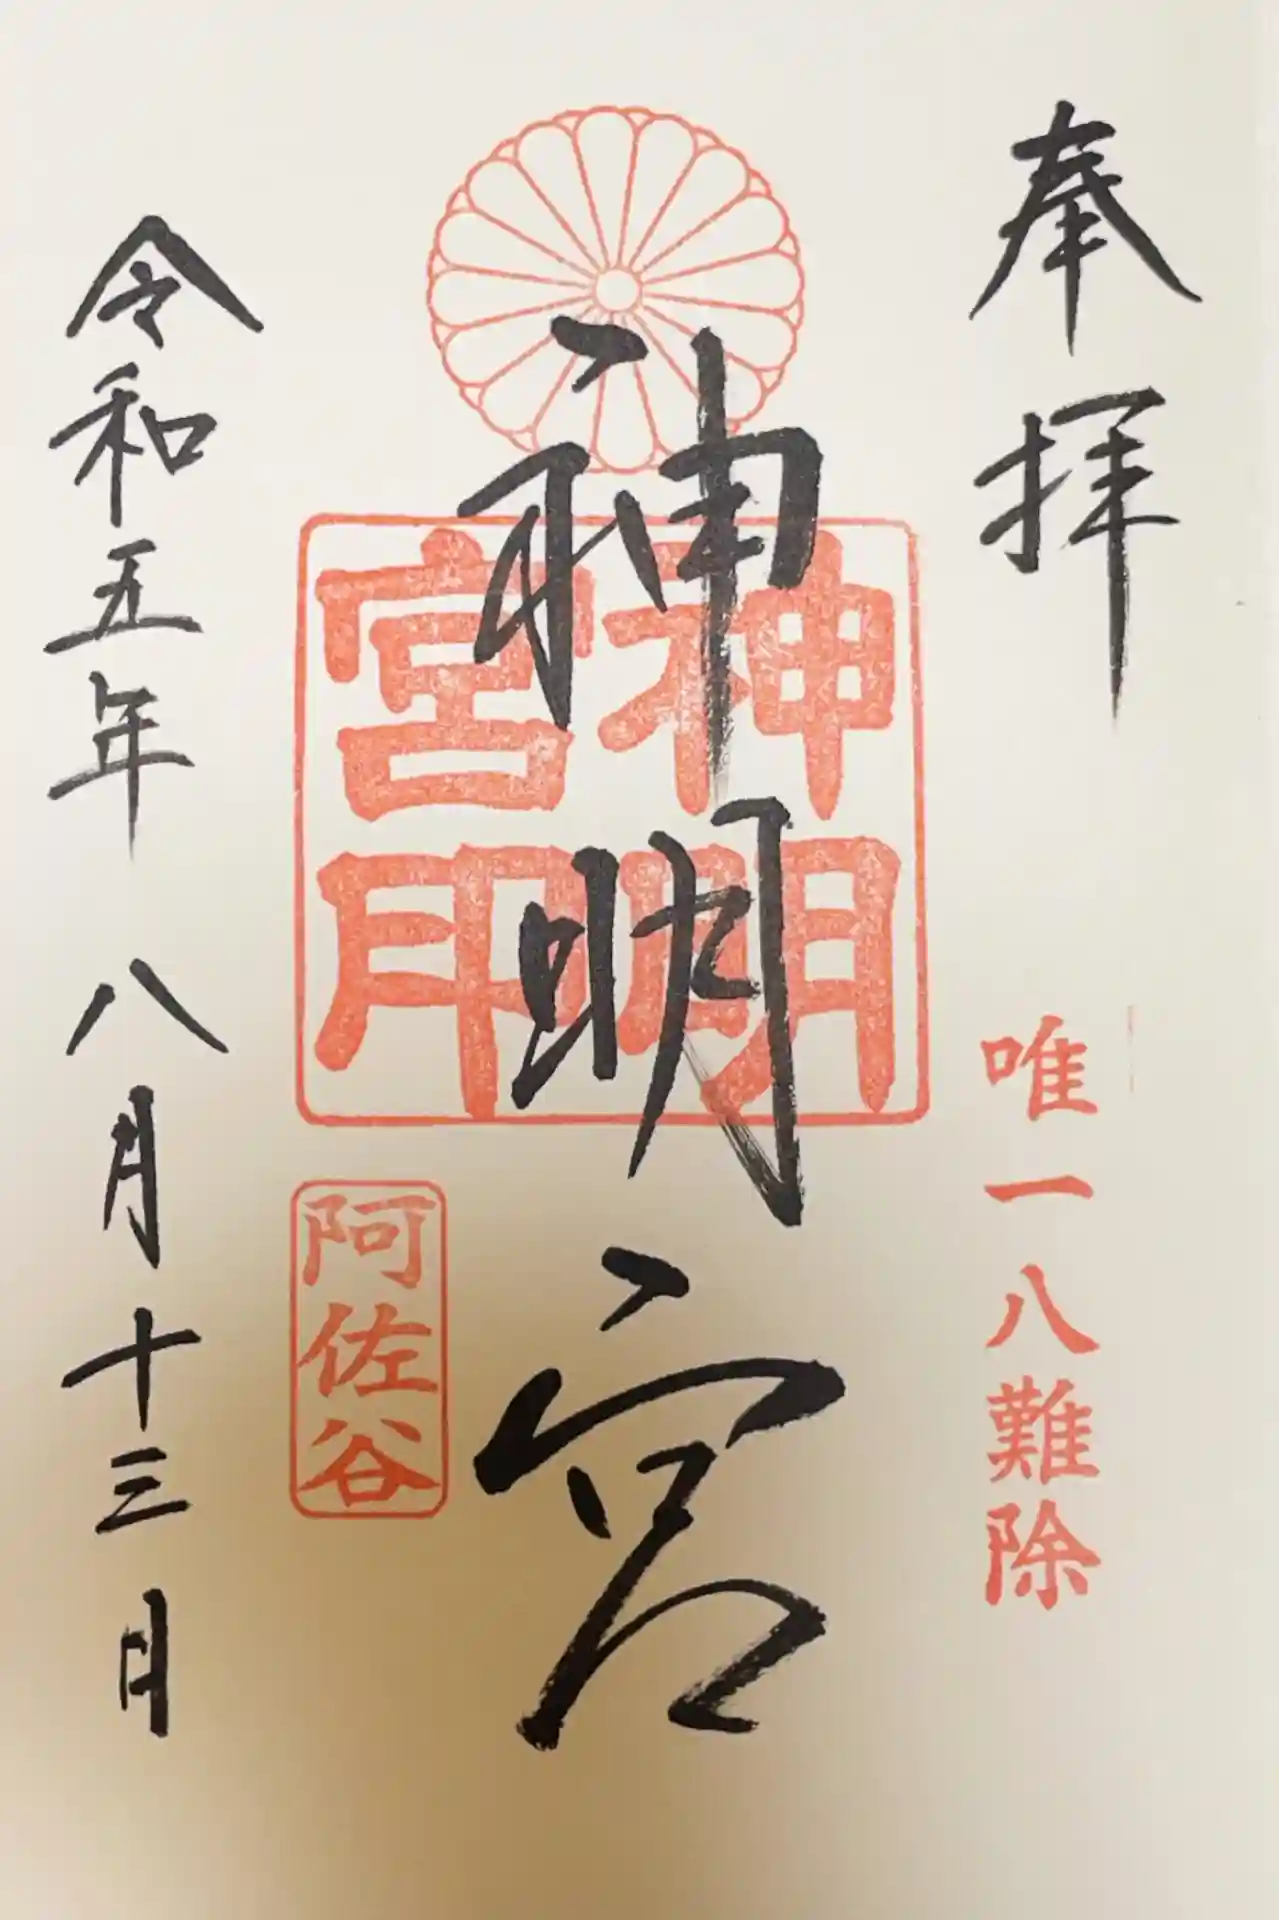 奉拝
唯一八難除
神明宮
神明
宮印
阿佐谷
令和五年 八月十三日